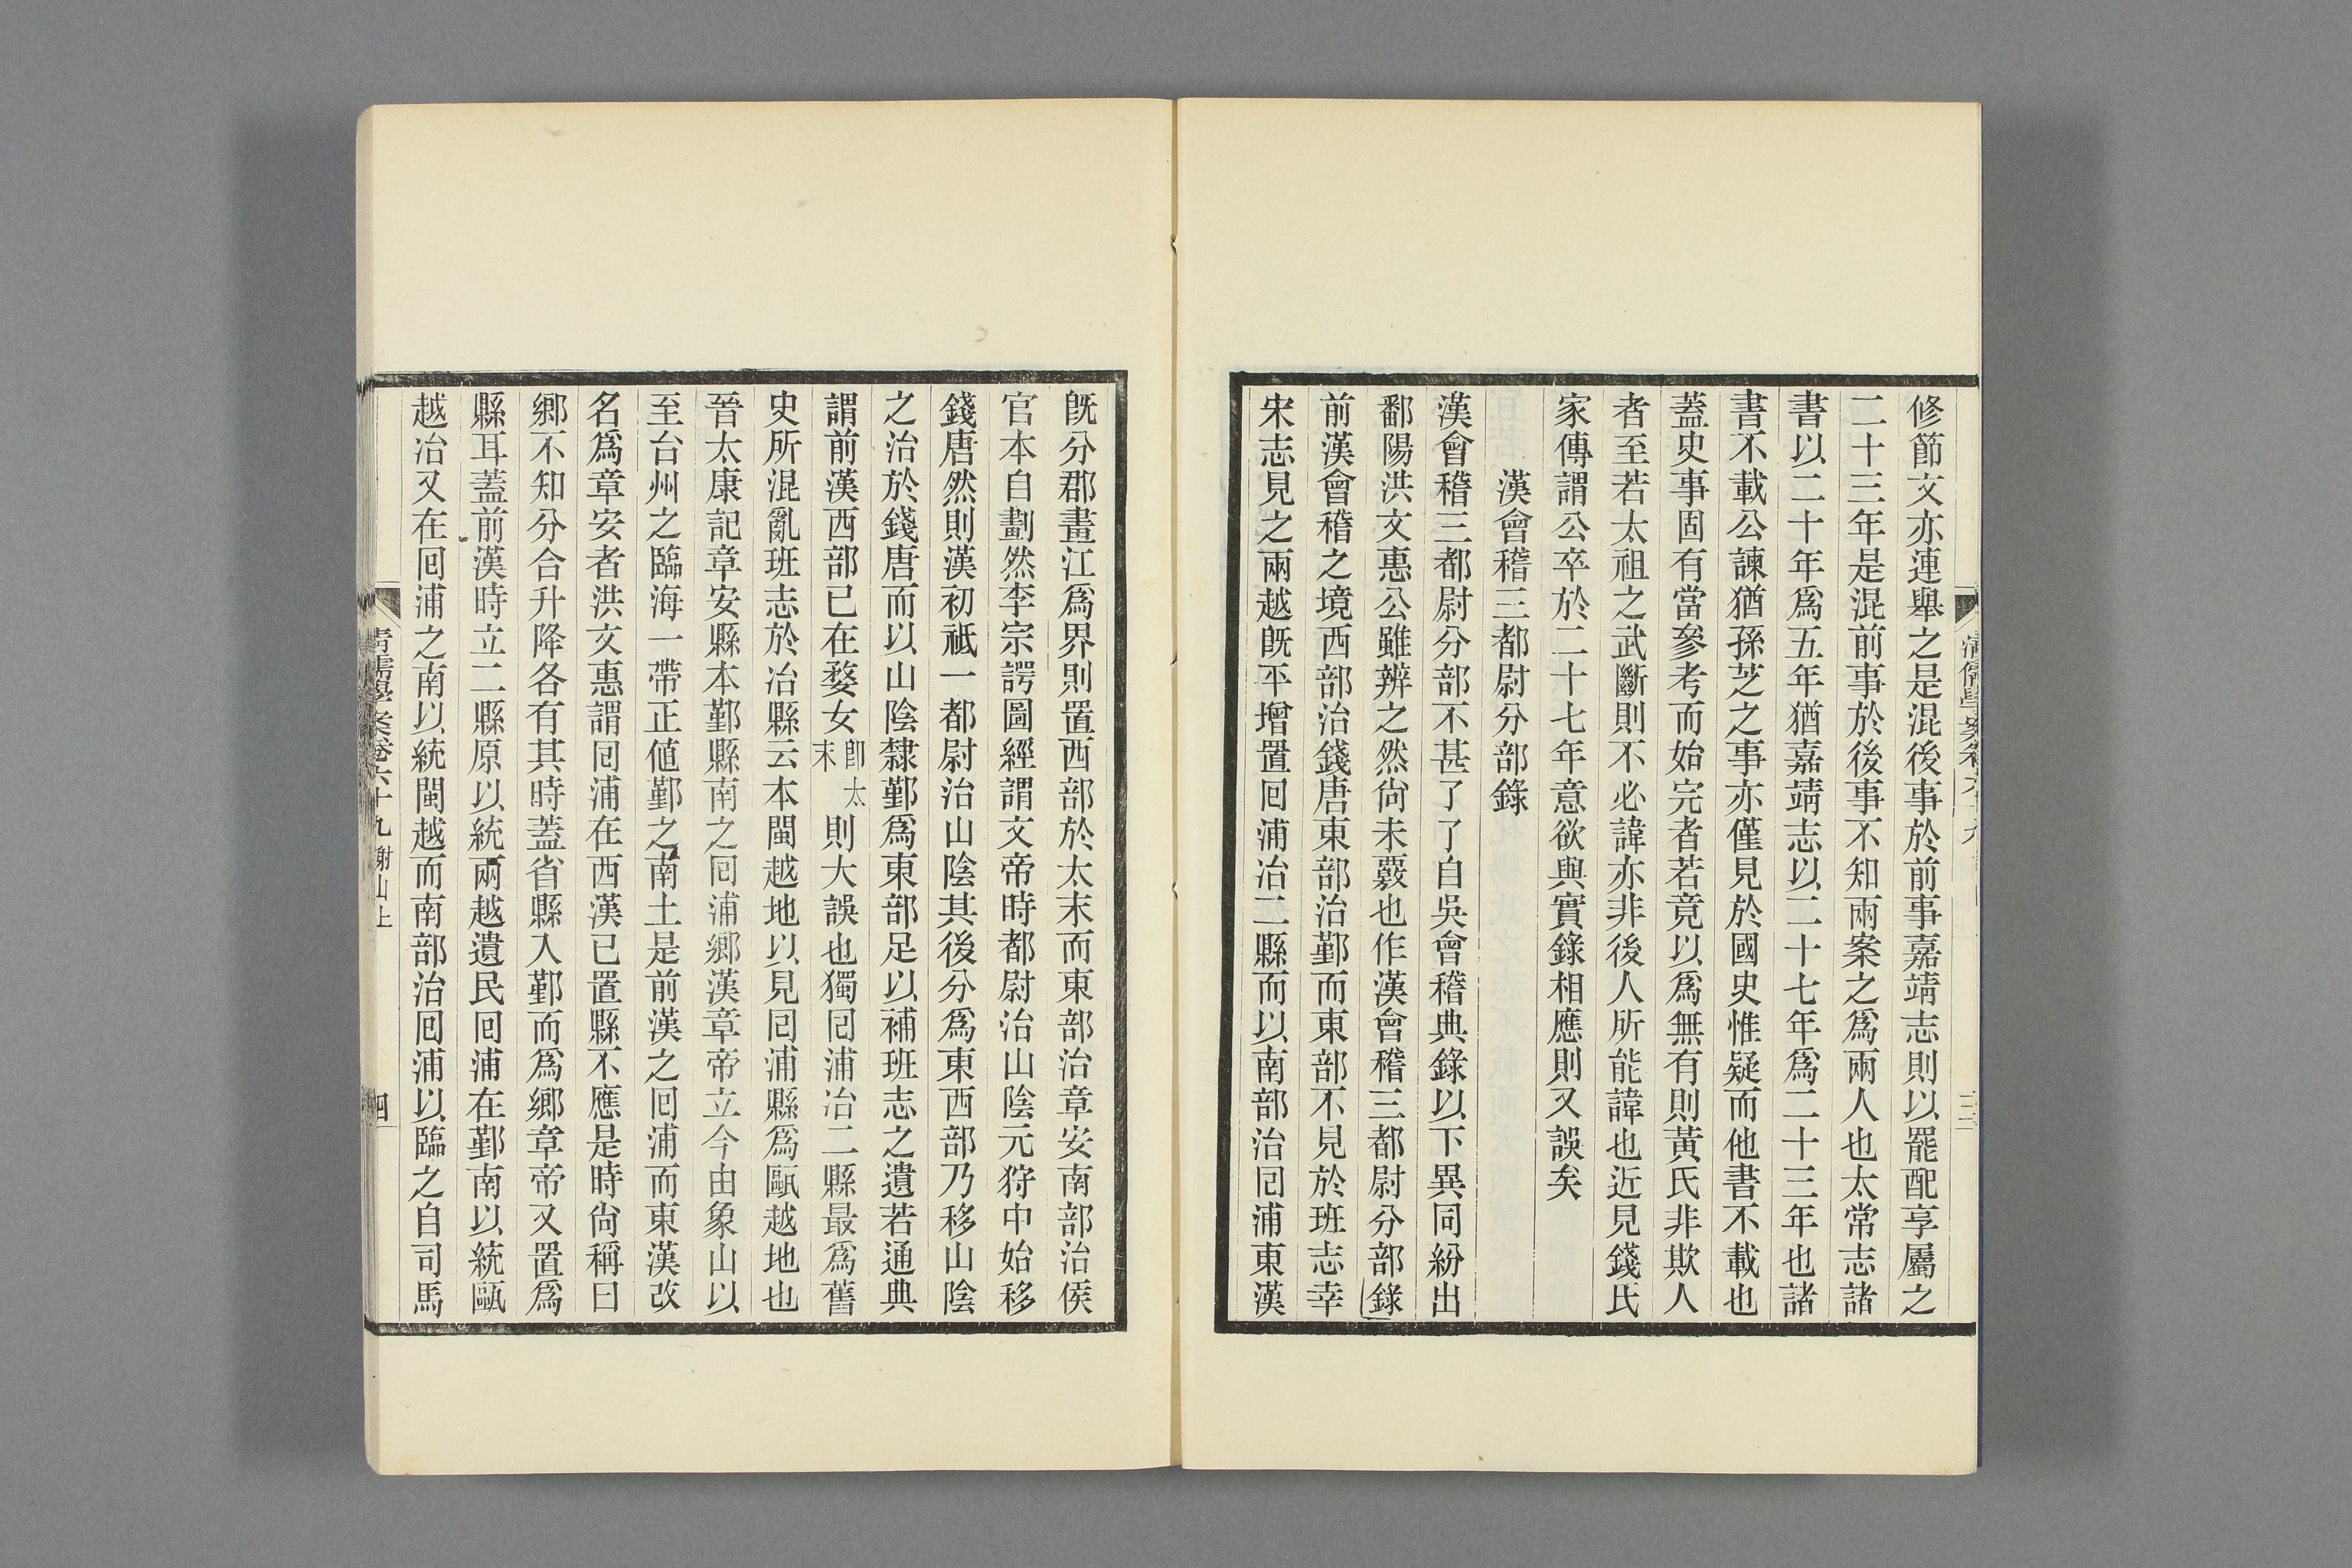 修節文亦連舉之是混後事於前事嘉靖志則以罷配享屬之
二十三年是混前事於後事不知兩案之爲兩人也太常志諸
書以二十年爲五年猶嘉靖志以二十七年爲二十三年也諸
書不載公諫猶孫芝之事亦僅見於國史惟疑而他書不載也
蓋史事固有當參考而始完者若竟以爲無有則黃氏非欺人
者至若太祖之武斷則不必諱亦非後人所能諱也近見錢氏
家傳謂公卒於二十七年意欲與實錄相應則又誤矣
漢會稽三都尉分部錄
漢會稽三都尉分部不甚了了自吳會稽典錄以下異同紛出
鄱陽洪文惠公雖辨之然尙未覈也作漢會稽三都尉分部錄
前漢會稽之境西部治錢唐東部治鄞而東部不見於班志幸
宋志見之兩越旣平增置回浦冶二縣而以南部治回浦東漢
旣分郡畫江爲界則置西部於太末而東部治章安南部治矦
官本自劃然李宗諤圖經謂文帝時都尉治山陰元狩中始移
錢唐然則漢初祇一都尉治山陰其後分爲東西部乃移山陰
之治於錢唐而以山陰隸鄞爲東部足以補班志之遺若通典
謂前漢西部已在婺女卽太末則大誤也獨回浦冶二縣最爲舊
史所混亂班志於冶縣云本閩越地以見回浦縣爲甌越地也
晉太康記章安縣本鄞縣南之回浦鄉漢章帝立今由象山以
至台州之臨海一帶正値鄞之南土是前漢之回浦而東漢改
名爲章安者洪文惠謂回浦在西漢已置縣不應是時尙稱曰
鄉不知分合升降各有其時蓋省縣入鄞而爲鄉章帝又置爲
縣耳蓋前漢時立二縣原以統兩越遺民回浦在鄞南以統甌
越冶又在回浦之南以統閩越而南部治回浦以臨之自司馬
清儒學案卷六十九 謝山上
四